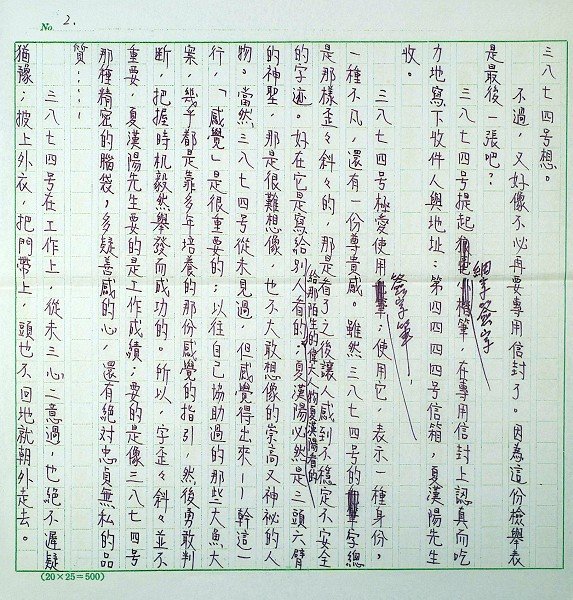 No. 2.
三八七四号想。
不過，又好像不必再要專用信封了。因為這份檢舉表
是最後一張吧？
三八七四号提起鋼筆簽字筆，在專用信封上認真而吃
力地寫下收件人與地址：第四四四四号信箱，夏漢陽先生
收。
三八七四号極愛使用簽字筆，使用它，表示一種身份，
一種不凡，還有一份尊貴感。雖然三八七四号的字總
是那樣歪々斜々的，那是看了之後讓人感到不稳定不安全
的字迹。好在它是寫給別人看的；給那陌生的偉大人物夏漢陽看的，夏漢陽必然是三頭六臂
的神聖，那是很難想像，也不大敢想像的崇高又神祕的人
物。當然，三八七四号從未見過，但感覺得出來——幹這一
行，「感覺」是很重要的；以往自己協助過的那些大魚大
案，幾乎都是靠多年培養的那份感覺的指引，然後勇敢判
断，把握時机毅然舉發而成功的。所以，字歪々斜々並不
重要，夏漢陽先生要的是工作成績；要的是像三八七四号
那種精密的腦殼，多疑善感的心，還有絕对忠貞無私的品
質……
三八七四号在工作上，從未三心二意過，也絕不遲疑
猶豫；披上外衣，把門帶上，頭也不回地就朝外走去。
(20×25=500)